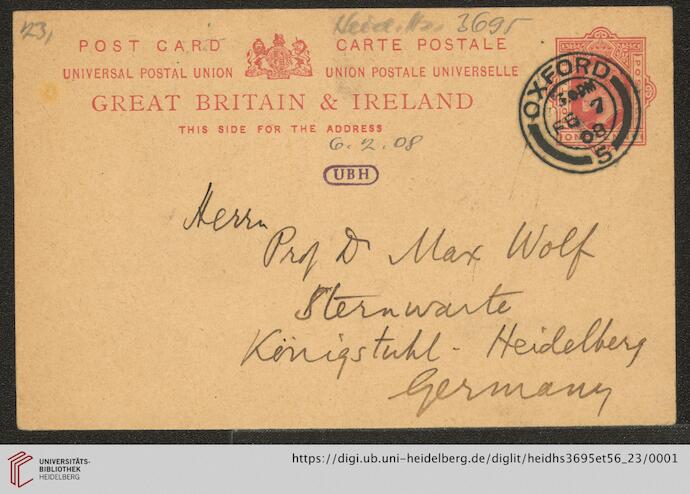 23,
Heid. Hs. 3695
POST CARD
CARTE POSTALE
UNIVERSAL POSTAL UNION
UNION POSTALE UNIVERSELLE
GREAT BRITAIN & IRELAND
THIS SIDE FOR THE ADDRESS
OXFORD
7
08
5
6.2.08
UBH
Herrn
Prof Dr Max Wolf
Sternwarte
Königstuhl - Heidelberg
Germany
UNIVERSITÄTS-
BIBLIOTHEK
HEIDELBERG
https://digi.ub.uni-heidelberg.de/diglit/heidhs3695et56_23/0001